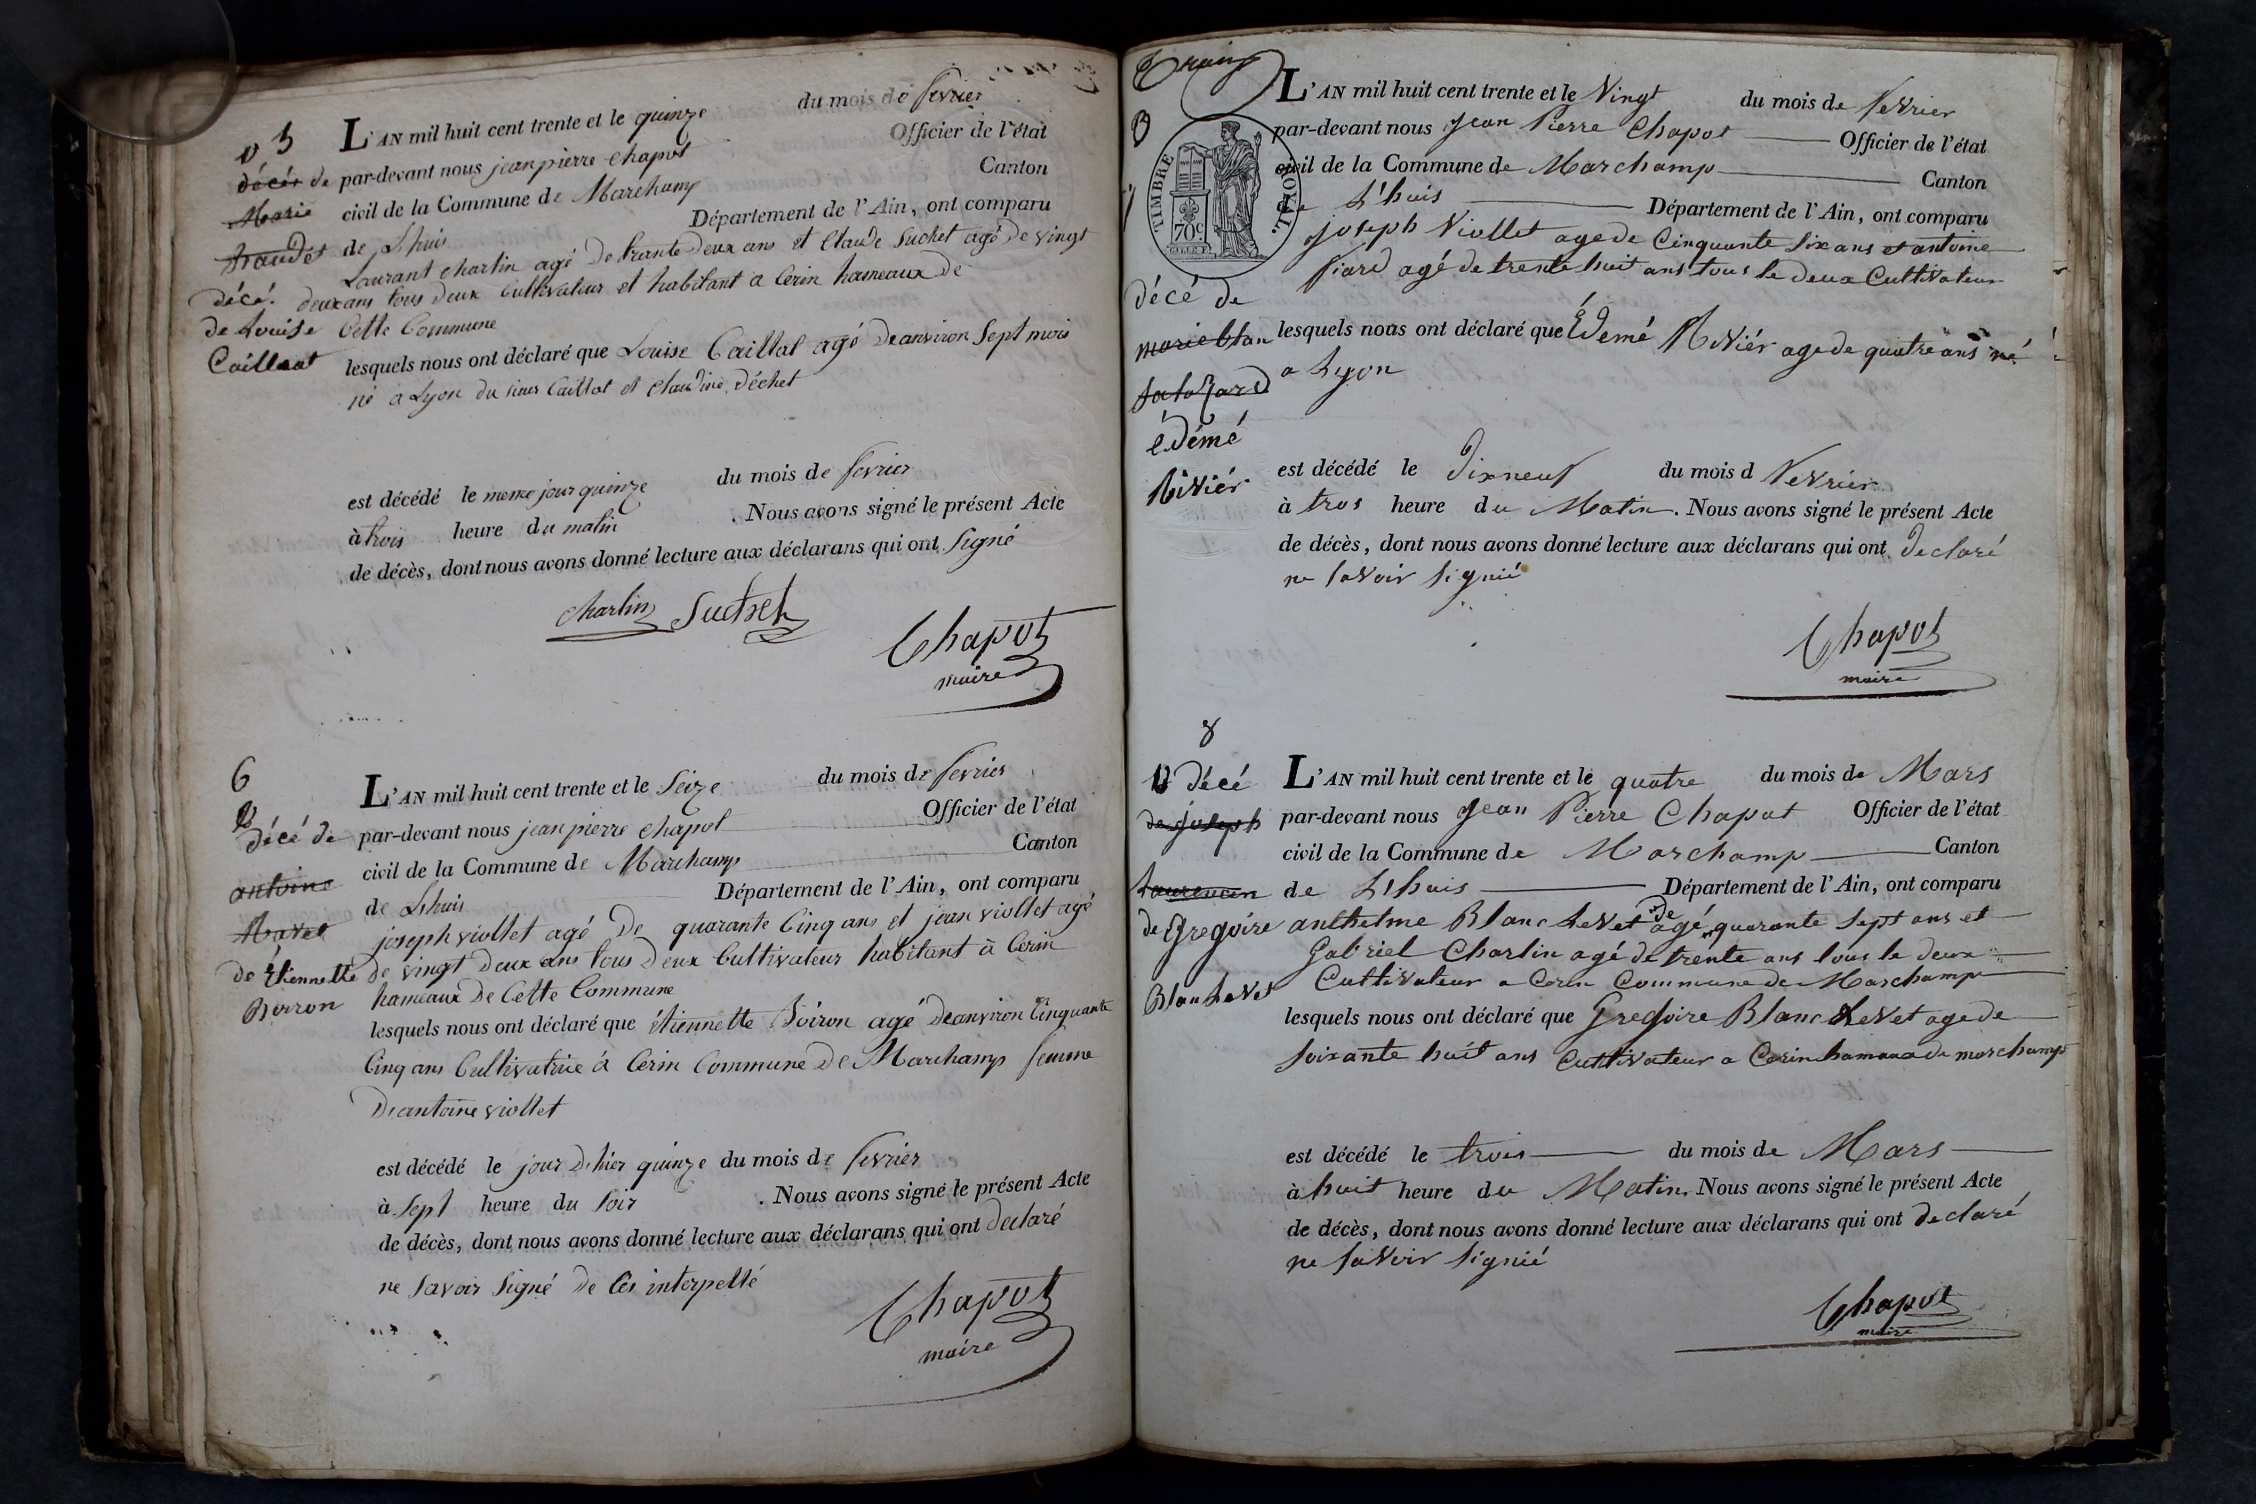 5
L'AN mil huit cent trente et le quinze du mois de fevrier
par-devant nous jean pierre chapot Officier de l'état
civil de la Commune de Marchamp Canton
de Lhuis Département de l'Ain, ont comparu
Laurant charlin agé de trante deux ans et Claude Suchet agé de vingt
deux ans tous deux Cultivateur et habitant a Cerin hameaux de
Cette Commune
lesquels nous ont déclaré que Louise Caillat agé deanviron Sept mois
né a Lyon du sieur Caillat et Claudine déchet
est décédé le meme jour quinze du mois de fevrier
à trois heure du matin . Nous avons signé le présent Acte
de décès, dont nous avons donné lecture aux déclarans qui ont Signé
charlin Suchet
Chapot
maire
décés de
Marie
décé.
de Louise
Caillat
6
L'AN mil huit cent trente et le Seize du mois de fevrier
par-devant nous jean pierre chapot Officier de l'état
civil de la Commune de Marchamp Canton
de Lhuis Département de l'Ain, ont comparu
joseph viollet agé de quarante Cinq ans et jean viollet agé
de vingt deux ans tous deux Cultivateur habitant à Cerin
hameaux de Cette Commune
lesquels nous ont déclaré que étiennette Boiron agé deanviron Cinquante
Cinq ans Cultivatrice à Cerin Commune de Marchamp femme
De antoine viollet
est décédé le jour d'hier quinze du mois de fevrier
à Sept heure du Soir . Nous avons signé le présent Acte
de décès, dont nous avons donné lecture aux déclarans qui ont declaré
ne Savoir Signé de Ces interpellé
Chapot
maire
décé de
antoine
de Étiennette
Boiron
TIMBRE ROYAL.
70c
L'AN mil huit cent trente et le Vingt du mois de Fevrier
par-devant nous Jean Pierre Chapot Officier de l'état
civil de la Commune de Marchamp Canton
de L'huis Département de l'Ain, ont comparu
Joseph Viollet age de Cinquante Six ans et antoine
Piard agé de trente huit ans tous le deux Cultivateur
lesquels nous ont déclaré que Édemé Riviér age de quatre ans né
a Lyon
est décédé le Dixneuf du mois d Fevrier
à tros heure du Matin. Nous avons signé le présent Acte
de décès, dont nous avons donné lecture aux déclarans qui ont declaré
ne Savoir Signié
Chapot
maire
décé de
édémé
Riviér
8
L'AN mil huit cent trente et le quatre du mois de Mars
par-devant nous Jean Pierre Chapot Officier de l'état
civil de la Commune de Marchamp Canton
de Lhuis Département de l'Ain, ont comparu
anthelme Blanc Levet agé de quarante Sept ans et
Gabriel Charlin agé de trente ans tous le deux
Cultivateur a Cerin Commune de Marchamp
lesquels nous ont déclaré que Gregoire Blanc Levet age de
Soixante huit ans Cultivateur a Cerin hamaux de marchamp
est décédé le trois du mois de Mars
à huit heure du Matin. Nous avons signé le présent Acte
de décès, dont nous avons donné lecture aux déclarans qui ont declaré
ne Savoir Signié
Chapot
maire
décé
de joseph
de Gregoire
Blan Levet